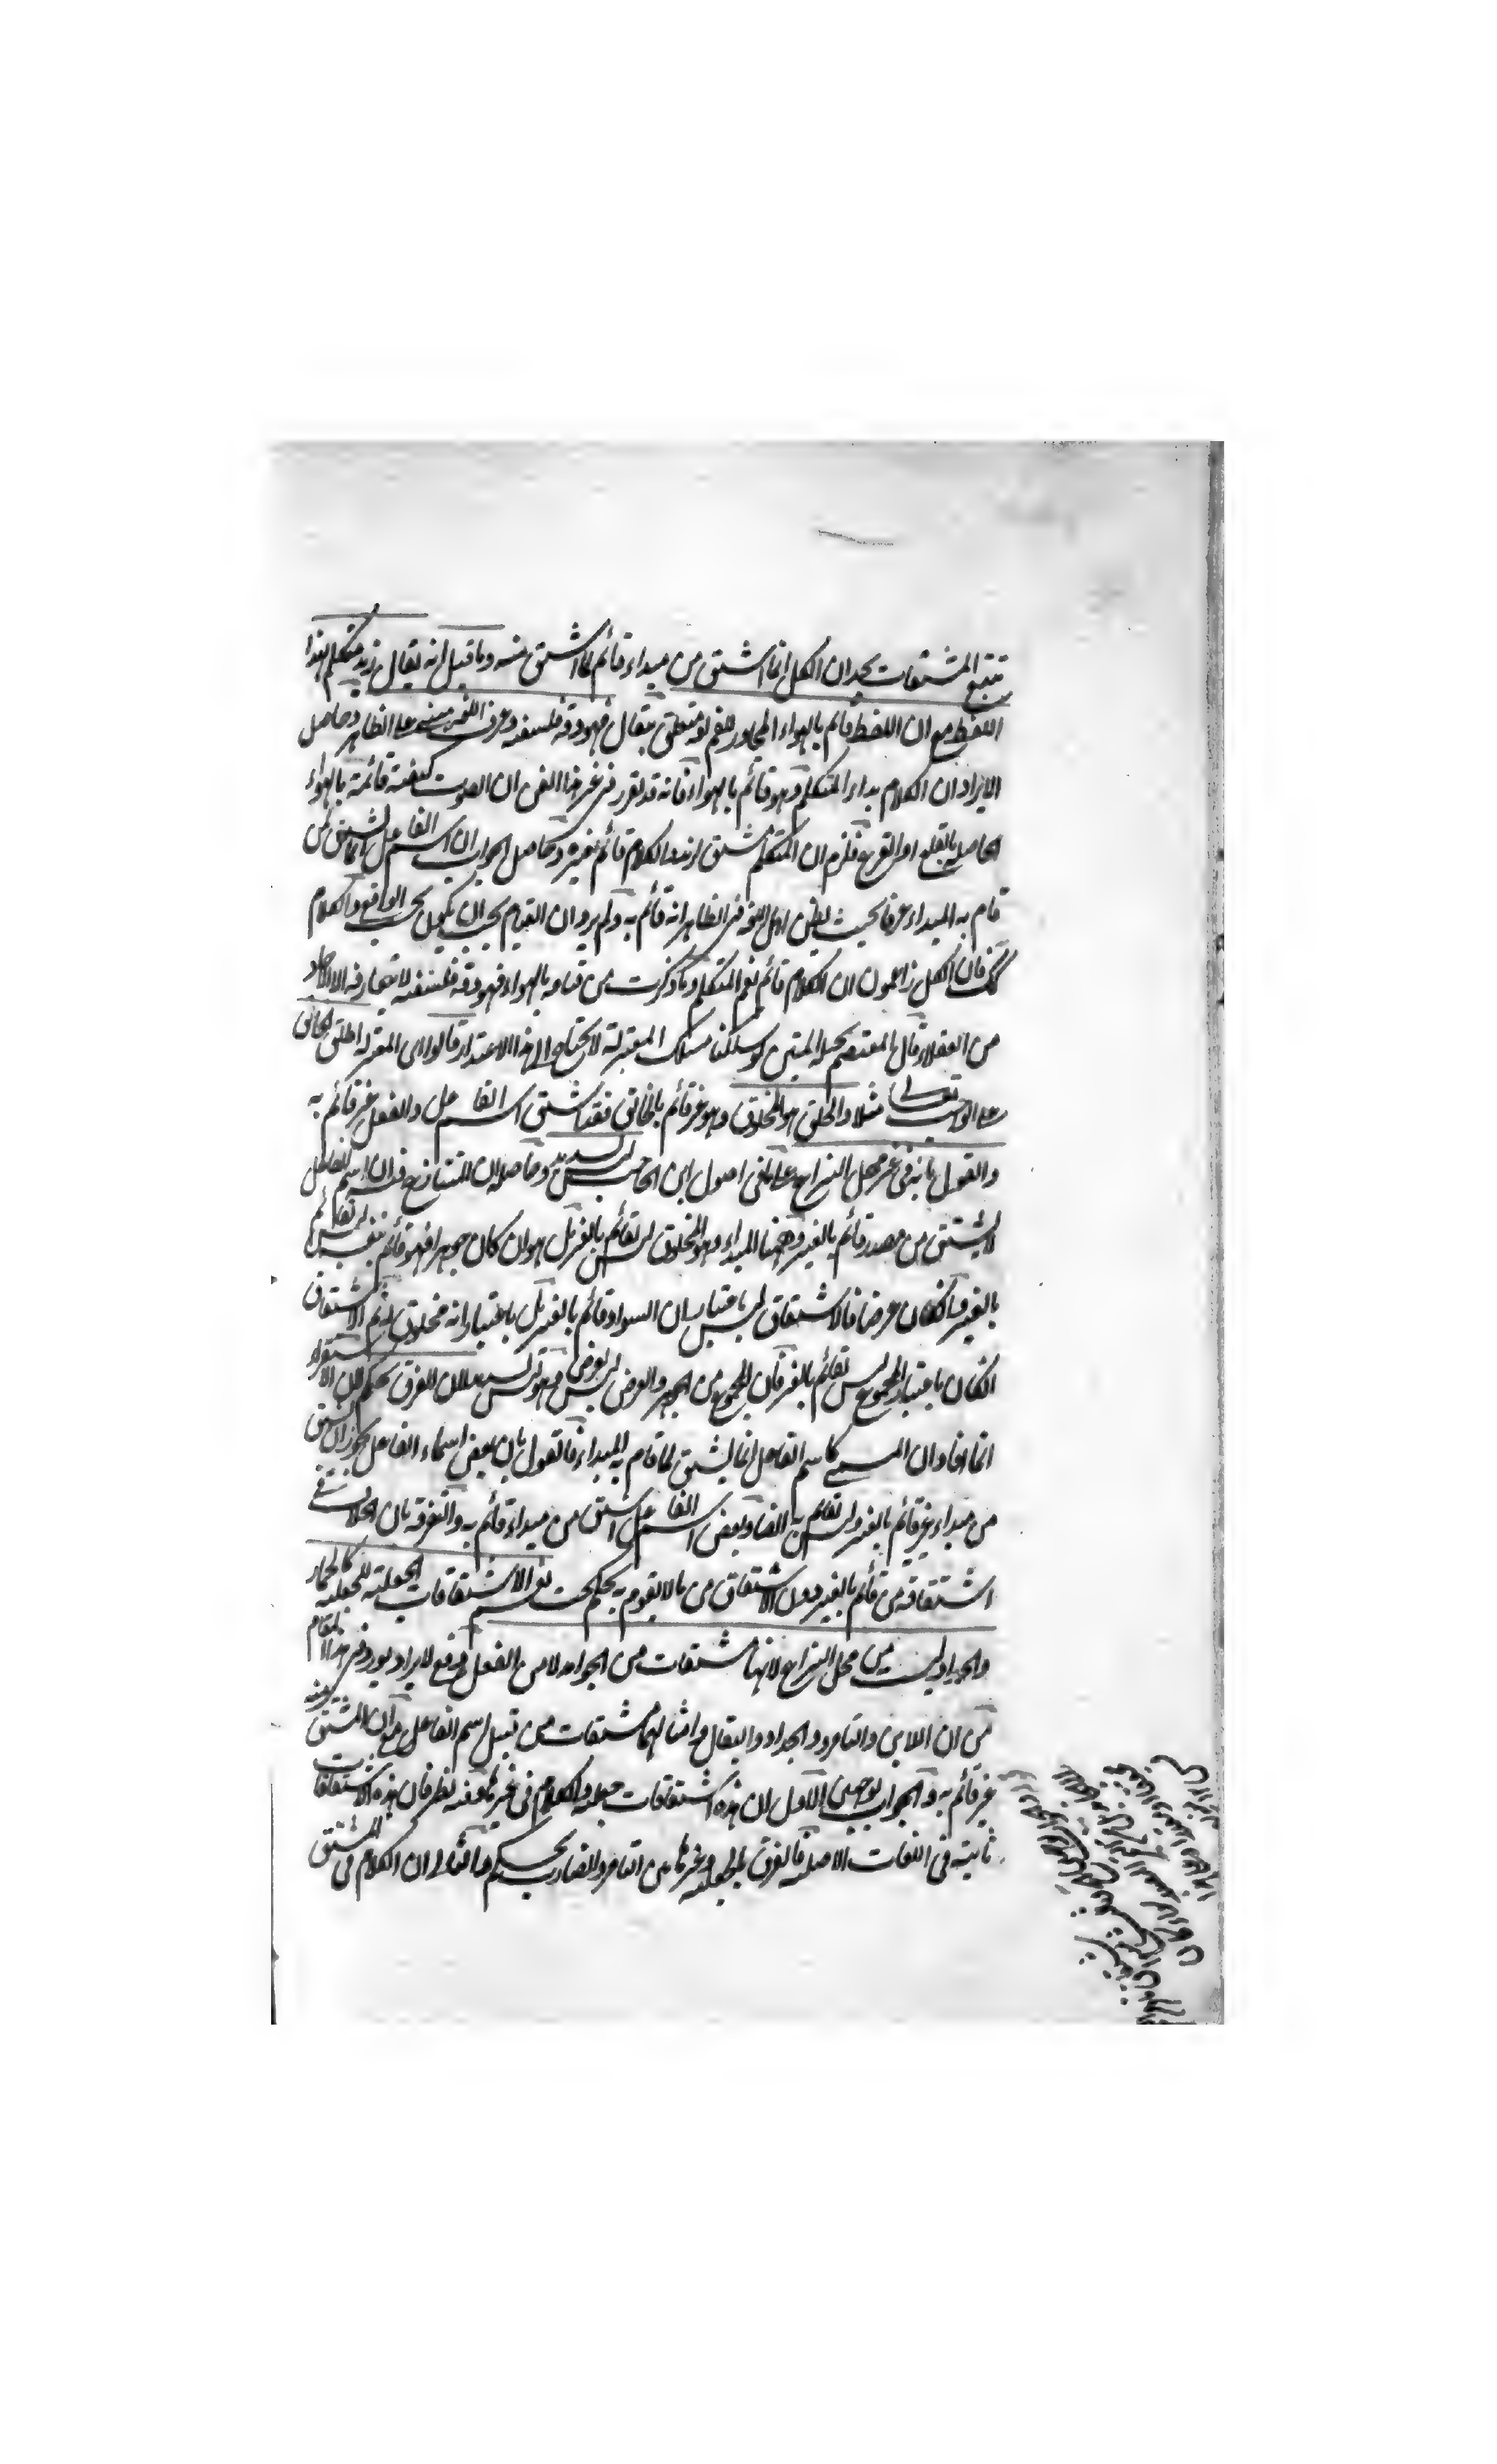 تتبع المشتقات يجد ان الكل انما اشتق من مبداء قائم لما اشتق منه وما قيل انه يقال زيد متكلم بهذا
اللفظ مع ان اللفظ قائم بالهواء المجاور للفم لو متعلق بيقال فهو دقة فلسفية وعرف اللغة مبني على الظاهر وحاصل
الايراد ان الكلام مبداء المتكلم وهو قائم بالهواء فانه قد تقرر في غير هذا الفن ان الصوت كيفية قائمة بالهواء
الحاصلة بالقلع او القرع فلزم ان المتكلم مشتق لزيد والكلام قائم بغيره وحاصل الجواب ان اسم الفاعل انما يشتق لمن
قام به المبداء عرفا بحيث يظن اهل اللغة في الظاهر انه قائم به ولم يرد ان القيام يجب ان يكون بحسب الواقع والكلام
كك فان الكل زاعمون ان الكلام قائم بفم المتكلم وما ذكرت من قيامه بالهواء فهو دقة فلسفية لا يتعارفه الا الاحاد
من العقلاء قال المعتصم بحبله المتين لو سلكنا مسلك المعتزلة لا يحتاج الى هذا الاعتذار قالوا اى المعتزلة اطلق الخالق
على الواجب تعالى مثلا والخلق هو المخلوق وهو غير قائم بالخالق فقد اشتق اسم الفاعل والفعل غير قائم به
والقول بانه في غير محل النزاع على ما في اصول ابن الحاجب ليس بسديد وحاصله ان المتنازع فيه ان اسم الفاعل
لا يشتق من مصدر قائم بالغير وههنا المبداء وهو المخلوق ليس بقائم بالغير بل هو ان كان جوهرا فهو قائم بنفسه ليس بقائم
بالغير وان كان عرضا فالاشتقاق ليس باعتبار ان السواد قائم بالغير بل باعتبار انه مخلوق ثم الاشتقاق
ان كان باعتبار المجموع ليس بقائم بالغير فان المجموع من الجوهر والعرض ليس بعرض وهو ليس بسديد لان الفرق تحكم لان الاستقراء
انما افاد ان المسمى كاسم الفاعل انما يشتق لما قام به المبداء فالقول بان بعض اسماء الفاعل يجوز ان يشتق
من مبداء غير قائم بالغير وليس بقائم به ايضا وبعض اسم الفاعل اشتق من مبداء قائم به والتفرقة بان الخلاف في
اشتقاقه من قائم بالغير دون الاشتقاق من ما لا يقوم به تحكم بحت نعم الاشتقاقات الجعلية كالحمار
والحداد ليست من محل النزاع لانها مشتقات من الجوامد لا من الفعل دفع لايراد يورد في هذا المقام
من ان اللابن والتامر والحداد والبقال وامثالها مشتقات من قبيل اسم الفاعل مع ان المشتق منه
غير قائم به والجواب بوجهين الاول ان هذه اشتقاقات جعلية والكلام في غيرها وفيه نظر فان هذه الاشتقاقات
ثابتة في اللغات الاصلية فالفرق بالجعلية وغيرها من التامر والضارب تحكم والثاني ان الكلام في المشتق